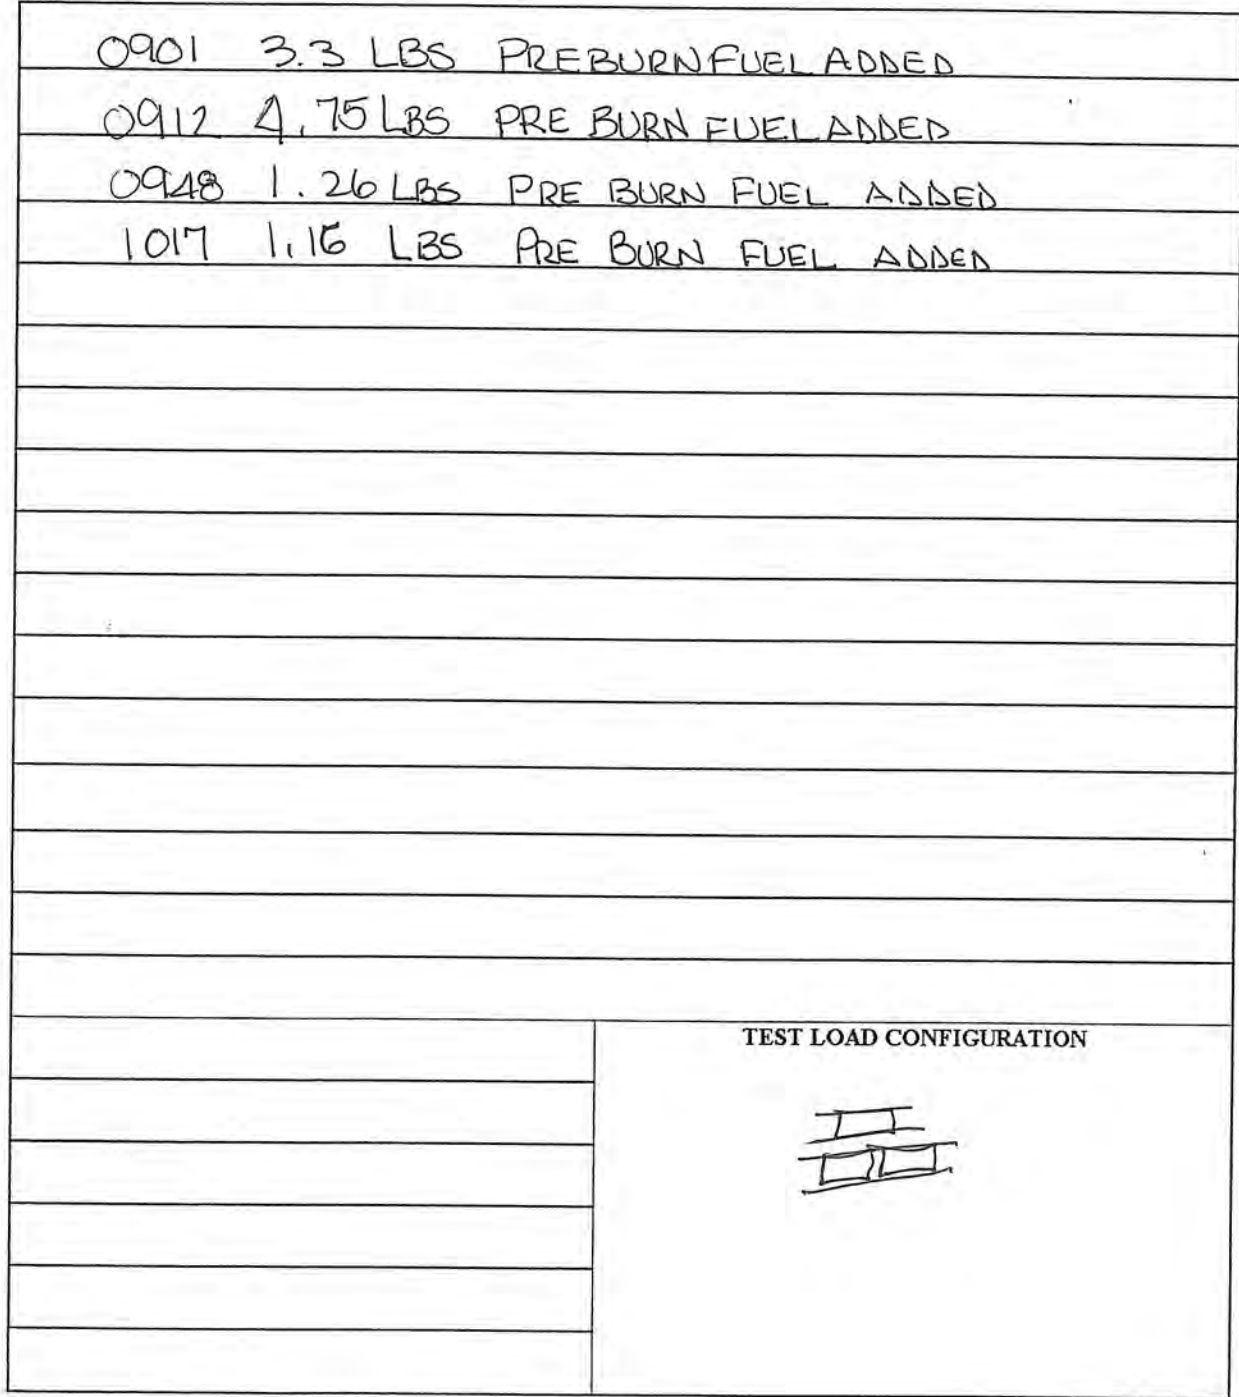 0901 3.3 LBS PREBURN FUEL ADDED
0912 4.75 LBS PRE BURN FUEL ADDED
0948 1.26 LBS PRE BURN FUEL ADDED
1017 1.16 LBS PRE BURN FUEL ADDED
TEST LOAD CONFIGURATION